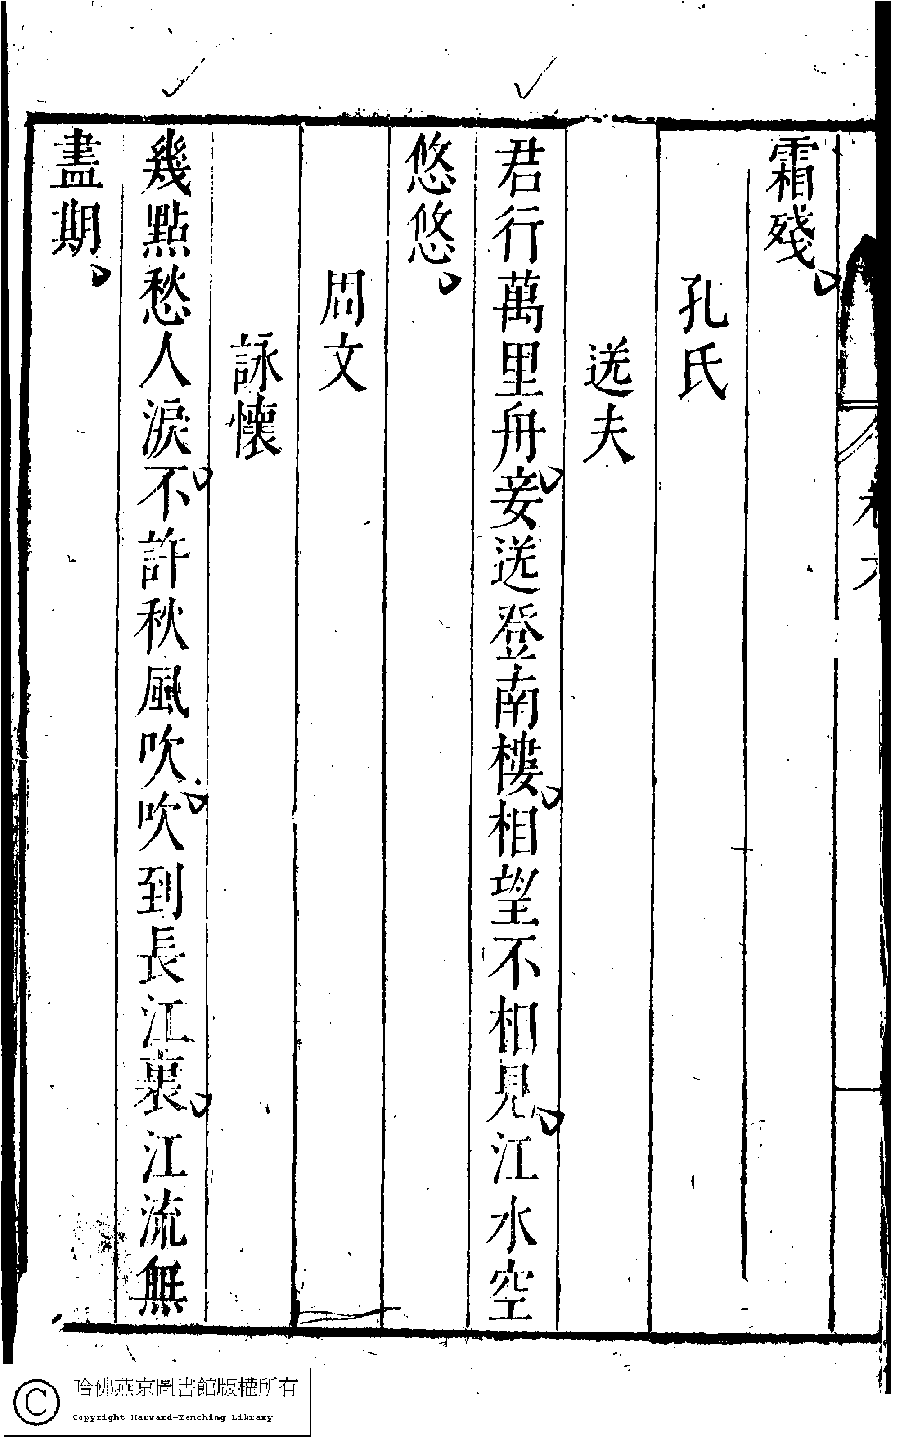 霜殘
孔氏
送夫
君行萬里舟妾送登南樓相望不相見江水空
悠悠
周文
詠懷
幾點愁人淚不許秋風吹吹到長江裏江流無
盡期
哈佛燕京圖書館版權所有
Copyright Harvard-Yenching Library